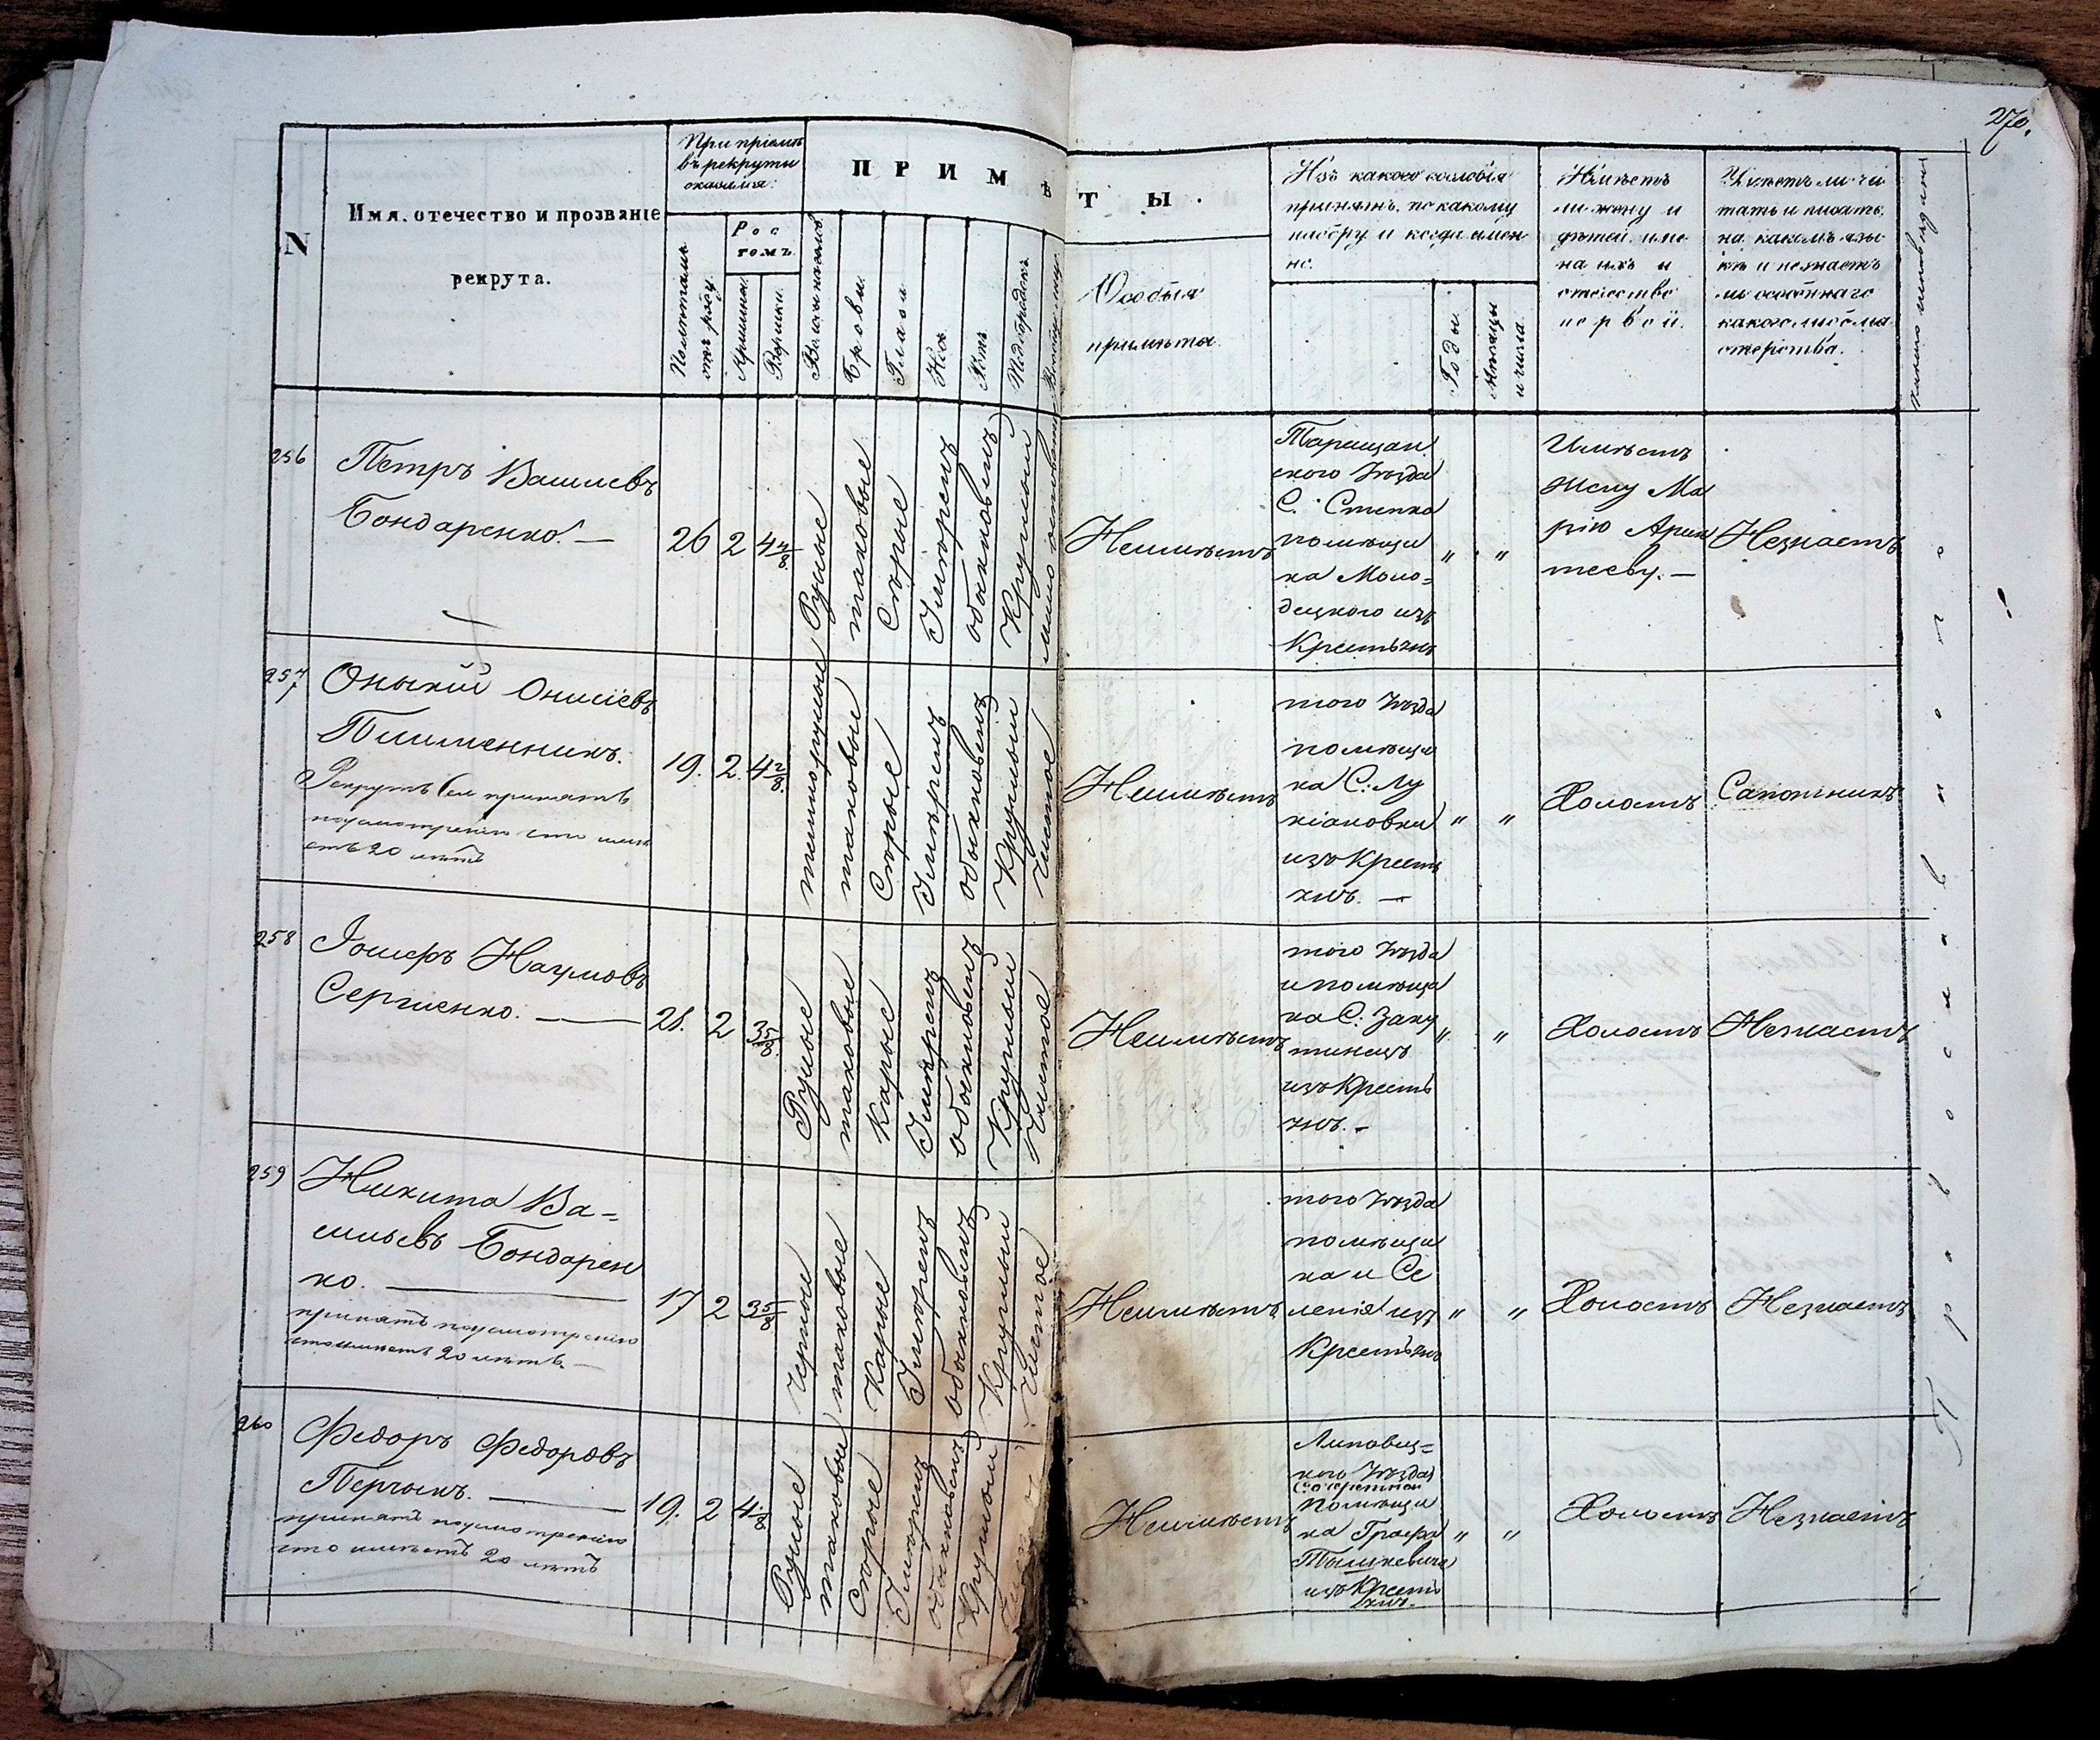 270.
N
Имя, отечество и прозваніе
рекрута.
При пріемѣ
въ рекруты
оказался:
Полѣтамъ
отъ роду
Рос
томъ
Аршина
Вершки.
ПРИМѢТЫ.
Волосы на голов.
Брови.
Глаза
Носъ
Ротъ
Подбородокъ
Особыя
примѣты.
Изъ какого сословія
принятъ, по какому
набору и когда имен
но.
Годы.
Мѣсяцы
и числа.
Имѣетъ
ли жену и
дѣтей, име
на ихъ и
отечество
первой.
Умѣетъ ли чи
тать и писать,
на какомъ язы
кѣ и незнаетъ
ли особеннаго
какого либо ма
стерства.
256
Петръ Васильевъ
Бондаренко. —
26
2
4 4/8
Русые
таковые
Сѣрые
Умѣренъ
обыкновенъ
Круглый
Неимѣетъ
Таращан
ского Уѣзда
С. Степка
помѣщи
ка Моло=
децкого изъ
Крестьянъ
"
"
Имѣетъ
Жену Ма
рію
тееву. —
Незнаетъ
257
Оныкій Онисіевъ
Рекрутъ сей принятъ
поусмотренію что имѣ
етъ 20 лѣтъ
19.
2.
4 2/8
темнорусые
таковые
Сѣрые
Умѣренъ
обыкновенъ
Круглый
Чистое
Неимѣетъ
того Уѣзда
помѣщи
ка С. Лу
кіановки
изъ Крестья
янъ. —
"
"
Холостъ
Сапожникъ
258
Іосифъ Наумовъ
Сергиенко. —
21.
2
3 5/8
Русые
таковые
Карые
Умѣренъ
обыкновенъ
Круглый
Чистое
Неимѣетъ
того Уѣзда
и помѣщи
ка С. Заку
тинецъ
изъ Кресть
янъ. —
"
"
Холостъ
Незнаетъ
259
Никита Ва=
сильевъ Бондарен
ко. —
принятъ поусмотренію
что имѣетъ 20 лѣтъ. —
17
2
3 5/8
Черные
таковые
Карые
Умѣренъ
обыкновенъ
Круглый
Чистое
Неимѣетъ
того Уѣзда
помѣщи
ка и Се
ленія изъ
Крестьянъ
"
"
Холостъ
Незнаетъ
260
Федоръ Федоровъ
—
принятъ поусмотренію
что имѣетъ 20 лѣтъ
19.
2
Русые
таковые
Сѣрые
Умѣренъ
обыкновенъ
Круглый
Неимѣетъ
Липовец=
кого Уѣзда
помѣщи
ка Графа
Тышкевича
изъ Кресть
янъ.
"
"
Холостъ
Незнаетъ
Православного